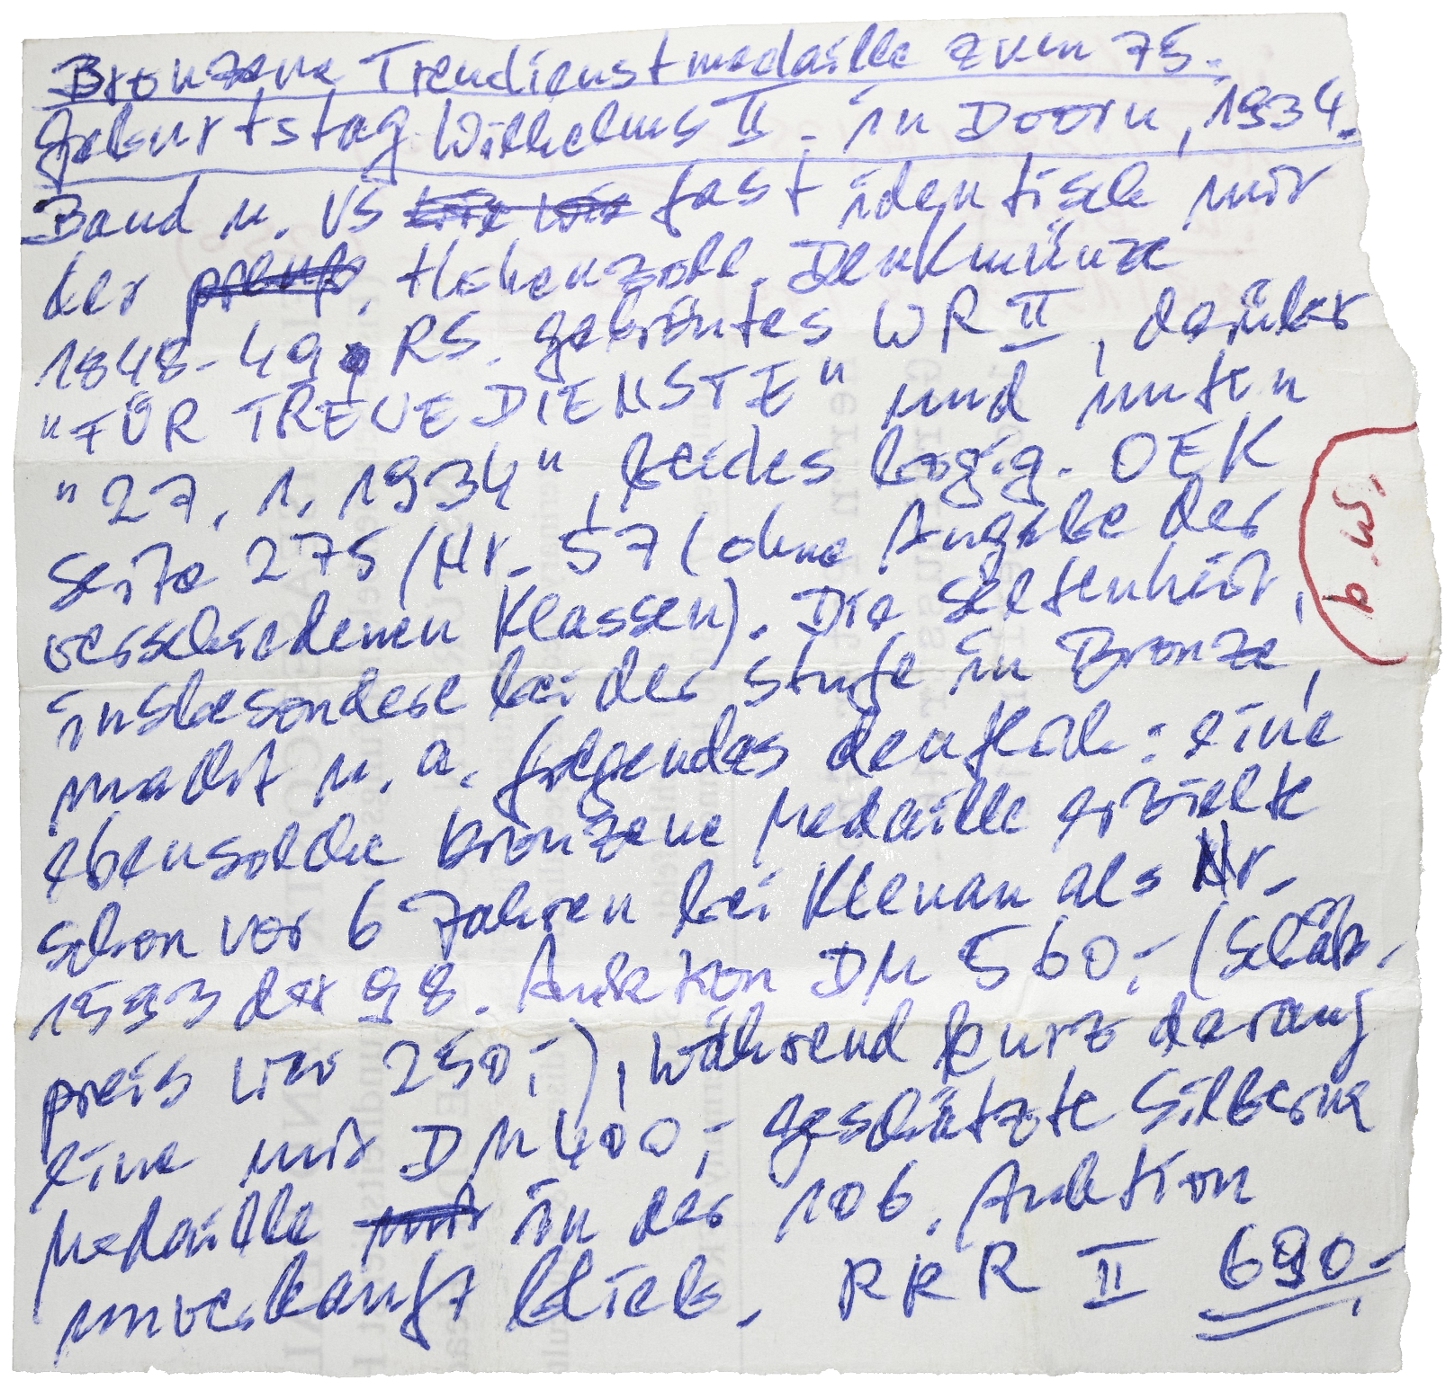 Bronzene Treudienstmedaille zum 75.
Geburtstag Wilhelms II. in Doorn, 1934.
Band u. VS fast identisch mit
der Hohenzoll. Denkmünze
1848-49. RS. gekröntes WR II, darüber
"FÜR TREUE DIENSTE" und unten
"27. 1. 1934", sechs bogig. OEK
Seite 275 / Nr. 57 (ohne Angabe der
verschiedenen Klassen). Die Seltenheit,
insbesondere bei der Stufe in Bronze,
macht u. a. folgendes deutlich: eine
ebensolche bronzene Medaille erzielte
schon vor 6 Jahren bei Klenau als Nr.
1593 der 98. Auktion DM 560,- (Schätz-
preis war 250,-), während kurz darauf
eine mit DM 400,- geschätzte Silberne
Medaille in der 106. Auktion
unverkauft blieb. RRR II 690,-